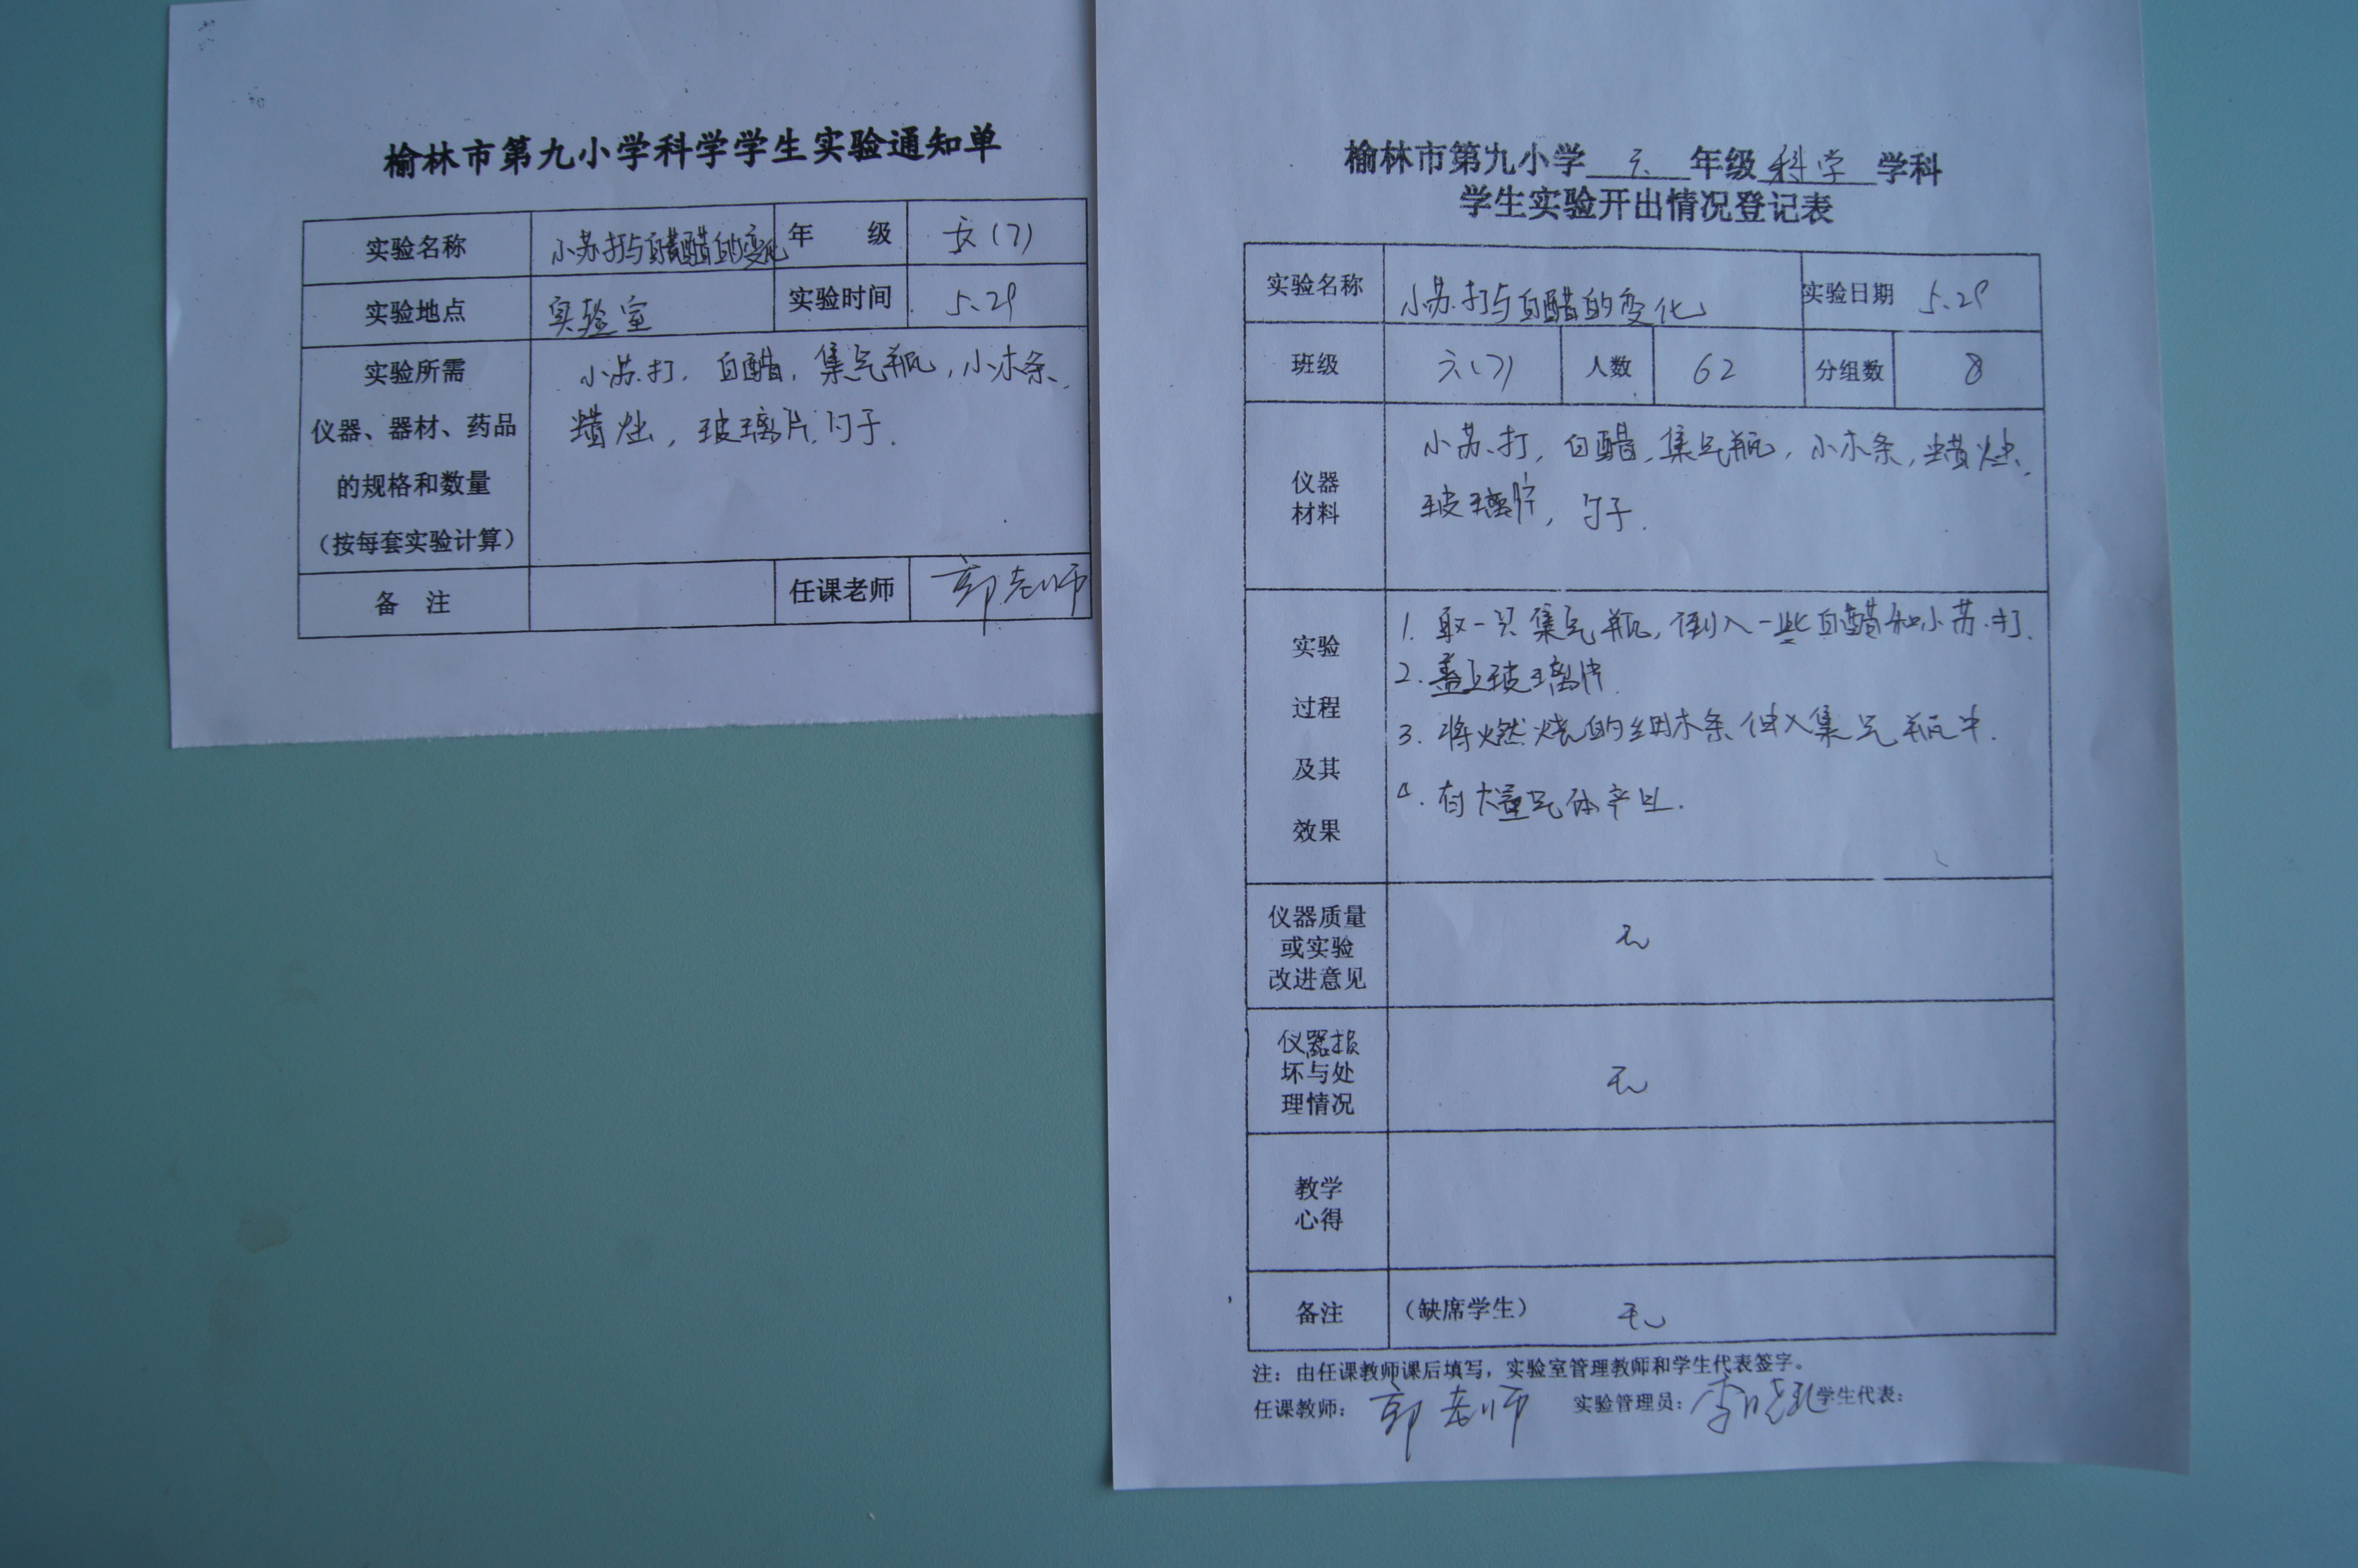 榆林市第九小学科学学生实验通知单
实验名称 小苏打与白醋的变化 年 级 六(7)
实验地点 实验室 实验时间 5.29
实验所需
仪器、器材、药品
的规格和数量
(按每套实验计算)
小苏打,白醋,集气瓶,小木条、
蜡烛,玻璃片,勺子.
备 注 任课老师 郭老师
榆林市第九小学 六 年级 科学 学科
学生实验开出情况登记表
实验名称 小苏打与白醋的变化 实验日期 5.29
班级 六(7) 人数 62 分组数 8
仪器
材料
小苏打,白醋,集气瓶,小木条,蜡烛、
玻璃片,勺子.
实验
过程
及其
效果
1. 取一只集气瓶,倒入一些白醋和小苏打.
2. 盖上玻璃片.
3. 将燃烧的细木条伸入集气瓶中.
4. 有大量气体产生.
仪器质量
或实验
改进意见
无
仪器损
坏与处
理情况
无
教学
心得
备注 (缺席学生) 无
注:由任课教师课后填写,实验室管理教师和学生代表签字。
任课教师: 郭老师 实验管理员: 李晓 学生代表: